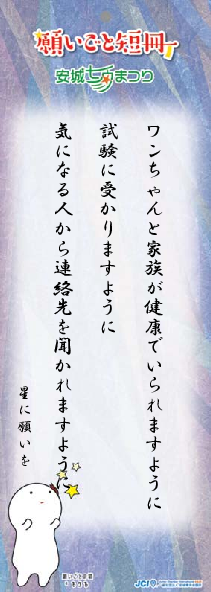 願いごと短冊
安城七夕まつり
ワンちゃんと家族が健康でいられますように
試験に受かりますように
気になる人から連絡先を聞かれますように
星に願いを
JCI